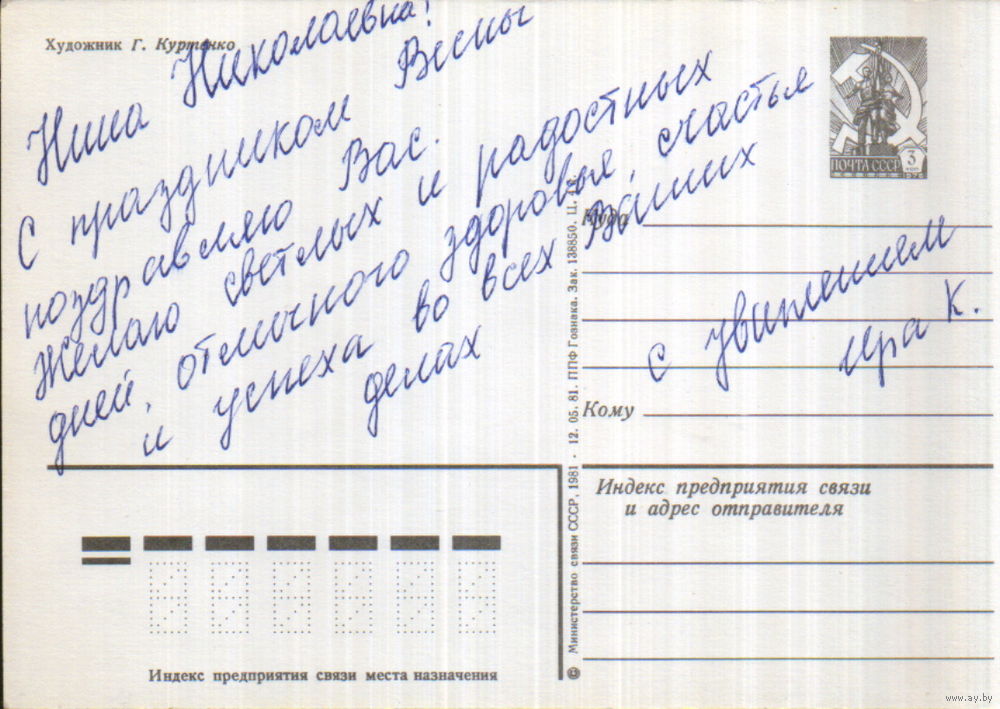 Художник Г. Куртенко
Нина Николаевна!
С праздником Весны
поздравляю Вас.
Желаю светлых и радостных
дней, отличного здоровья, счастья
и успеха во всех Ваших
делах
с уважением
Ира К.
ПОЧТА СССР 3 КОП
1976
Куда
Кому
Индекс предприятия связи
и адрес отправителя
© Министерство связи СССР, 1981 · 12. 05. 81. ППФ Гознака. Зак. 138850. Ц.
Индекс предприятия связи места назначения
www.ay.by